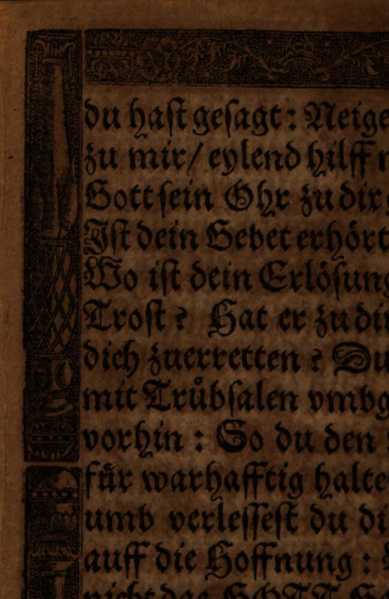 du hast gesagt: Neige
zu mir/ eylend hilff
Gott sein Ohr zu dir
Ist dein Gebet erhört
Wo ist dein Erlösung
Trost? Hat er zu di
dich zuerretten? Du
mit Trůbsalen vmbg
vorhin: So du den
für warhafftig halte
umb verlessest du di
auff die Hoffnung:
nicht das GOTT